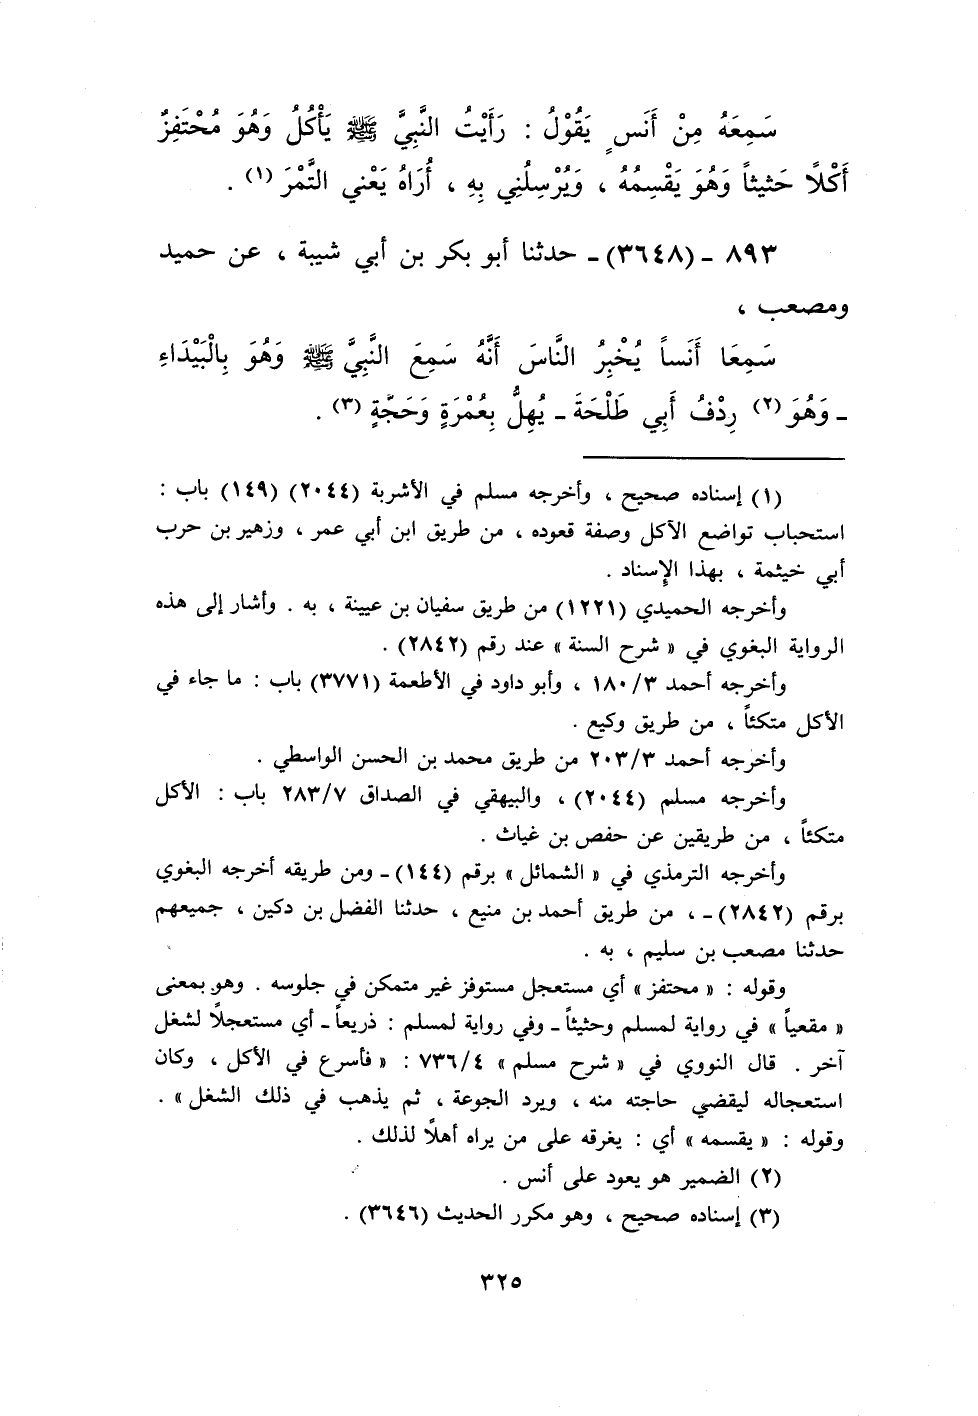 سَمِعَهُ مِنْ أَنَسٍ يَقُوْلُ : رَأَيْتُ النَّبِيَّ ﷺ يَأْكُلُ وَهُوَ مُحْتَفِزٌ
أَكْلًا حَثيثاً وَهُوَ يَقْسِمُهُ ، وَيُرْسِلُنِي بِهِ ، أُرَاهُ يَعْني التَّمْرَ (١) .
٨٩٣ - (٣٦٤٨) - حدثنا أبو بكر بن أبي شيبة ، عن حميد
ومصعب ،
سَمِعَا أَنَساً يُخْبِرُ النَّاسَ أَنَّهُ سَمِعَ النَّبِيَّ ﷺ وَهُوَ بِالْبَيْدَاءِ
- وَهُوَ (٢) رِدْفُ أَبِي طَلْحَةَ - يُهِلُّ بِعُمْرَةٍ وَحَجَّةٍ (٣) .
(١) إسناده صحيح ، وأخرجه مسلم في الأشربة (٢٠٤٤) (١٤٩) باب :
استحباب تواضع الآكل وصفة قعوده ، من طريق ابن أبي عمر ، وزهير بن حرب
أبي خيثمة ، بهذا الإِسناد .
وأخرجه الحميدي (١٢٢١) من طريق سفيان بن عيينة ، به . وأشار إلى هذه
الرواية البغوي في « شرح السنة » عند رقم (٢٨٤٢) .
وأخرجه أحمد ١٨٠/٣ ، وأبو داود في الأطعمة (٣٧٧١) باب : ما جاء في
الأكل متكئاً ، من طريق وكيع .
وأخرجه أحمد ٢٠٣/٣ من طريق محمد بن الحسن الواسطي .
وأخرجه مسلم (٢٠٤٤) ، والبيهقي في الصداق ٢٨٣/٧ باب : الأكل
متكئاً ، من طريقين عن حفص بن غياث .
وأخرجه الترمذي في « الشمائل » برقم (١٤٤) - ومن طريقه أخرجه البغوي
برقم (٢٨٤٢) - ، من طريق أحمد بن منيع ، حدثنا الفضل بن دكين ، جميعهم
حدثنا مصعب بن سليم ، به .
وقوله : « محتفز » أي مستعجل مستوفز غير متمكن في جلوسه . وهو بمعنى
« مقعياً » في رواية لمسلم وحثيثاً - وفي رواية لمسلم : ذريعاً - أي مستعجلًا لشغل
آخر . قال النووي في « شرح مسلم » ٧٣٦/٤ : « فأسرع في الأكل ، وكان
استعجاله ليقضي حاجته منه ، ويرد الجوعة ، ثم يذهب في ذلك الشغل » .
وقوله : « يقسمه » أي : يغرقه على من يراه أهلًا لذلك .
(٢) الضمير هو يعود على أنس .
(٣) إسناده صحيح ، وهو مكرر الحديث (٣٦٤٦) .
٣٢٥